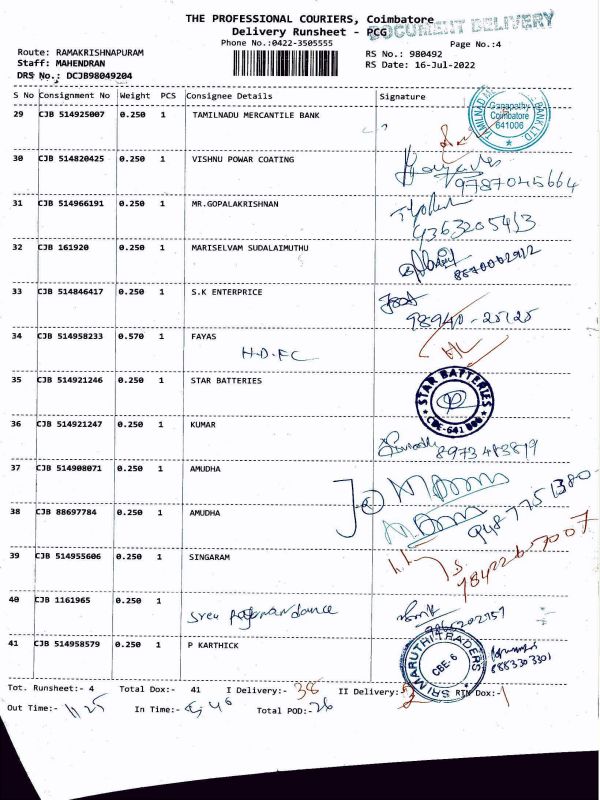 THE PROFESSIONAL COURIERS, Coimbatore
DOCUMENT DELIVERY
Delivery Runsheet - PCG
Phone No.:0422-3505555
Page No.:4
Route: RAMAKRISHNAPURAM
RS No.: 980492
Staff: MAHENDRAN
RS Date: 16-Jul-2022
DRS No.: DCJB98049204
S No Consignment No Weight PCS Consignee Details Signature
29 CJB 514925007 0.250 1 TAMILNADU MERCANTILE BANK
Ganapathy
Coimbatore
641006
BANK LTD.
30 CJB 514820425 0.250 1 VISHNU POWAR COATING
9787045664
31 CJB 514966191 0.250 1 MR.GOPALAKRISHNAN
9363205413
32 CJB 161920 0.250 1 MARISELVAM SUDALAIMUTHU
33 CJB 514846417 0.250 1 S.K ENTERPRICE
98940-25125
34 CJB 514958233 0.570 1 FAYAS
H.D.FC
35 CJB 514921246 0.250 1 STAR BATTERIES
STAR BATTERIES
CBE-641 006
36 CJB 514921247 0.250 1 KUMAR
8973483819
37 CJB 514908071 0.250 1 AMUDHA
38 CJB 88697784 0.250 1 AMUDHA
39 CJB 514955606 0.250 1 SINGARAM
9842265007
40 CJB 1161965 0.250 1
41 CJB 514958579 0.250 1 P KARTHICK
SRI MARUTHI TRADERS
CBE-6
8883303301
Tot. Runsheet:- 4 Total Dox:- 41 I Delivery:- 38 II Delivery:- 2 RTN Dox:-1
Out Time:- 11 25 In Time:- Total POD:-26